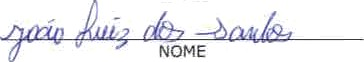 João Luiz dos Santos
NOME